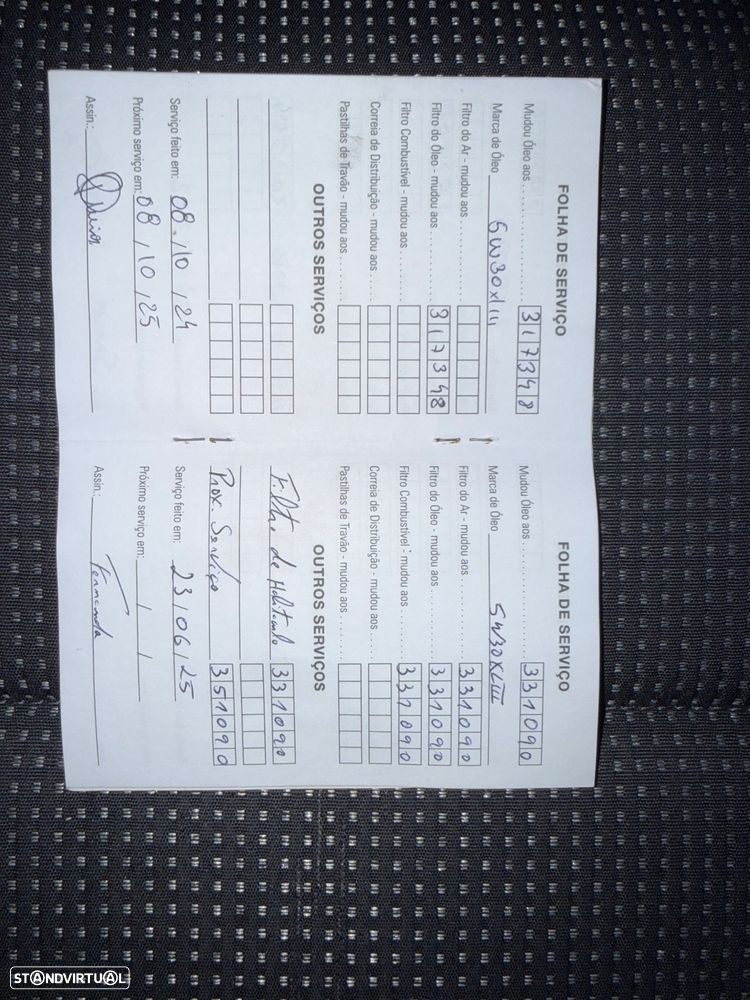 FOLHA DE SERVIÇO
Mudou Óleo aos 317348
Marca de Óleo 5W30XLIII
Filtro do Ar - mudou aos
Filtro do Óleo - mudou aos 317348
Filtro Combustível - mudou aos
Correia de Distribuição - mudou aos
Pastilhas de Travão - mudou aos
OUTROS SERVIÇOS
Serviço feito em: 08/10/24
Próximo serviço em: 08/10/25
Assin.:
FOLHA DE SERVIÇO
Mudou Óleo aos 331090
Marca de Óleo 5W30XLIII
Filtro do Ar - mudou aos 331090
Filtro do Óleo - mudou aos 331090
Filtro Combustível - mudou aos 331090
Correia de Distribuição - mudou aos
Pastilhas de Travão - mudou aos
OUTROS SERVIÇOS
Filtro de 331090
Prox. Serviço 351090
Serviço feito em: 23/06/25
Próximo serviço em: / /
Assin.: Fernanda
STANDVIRTUAL